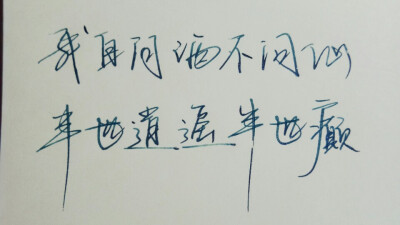 我自问酒不问仙
半世逍遥半世癫